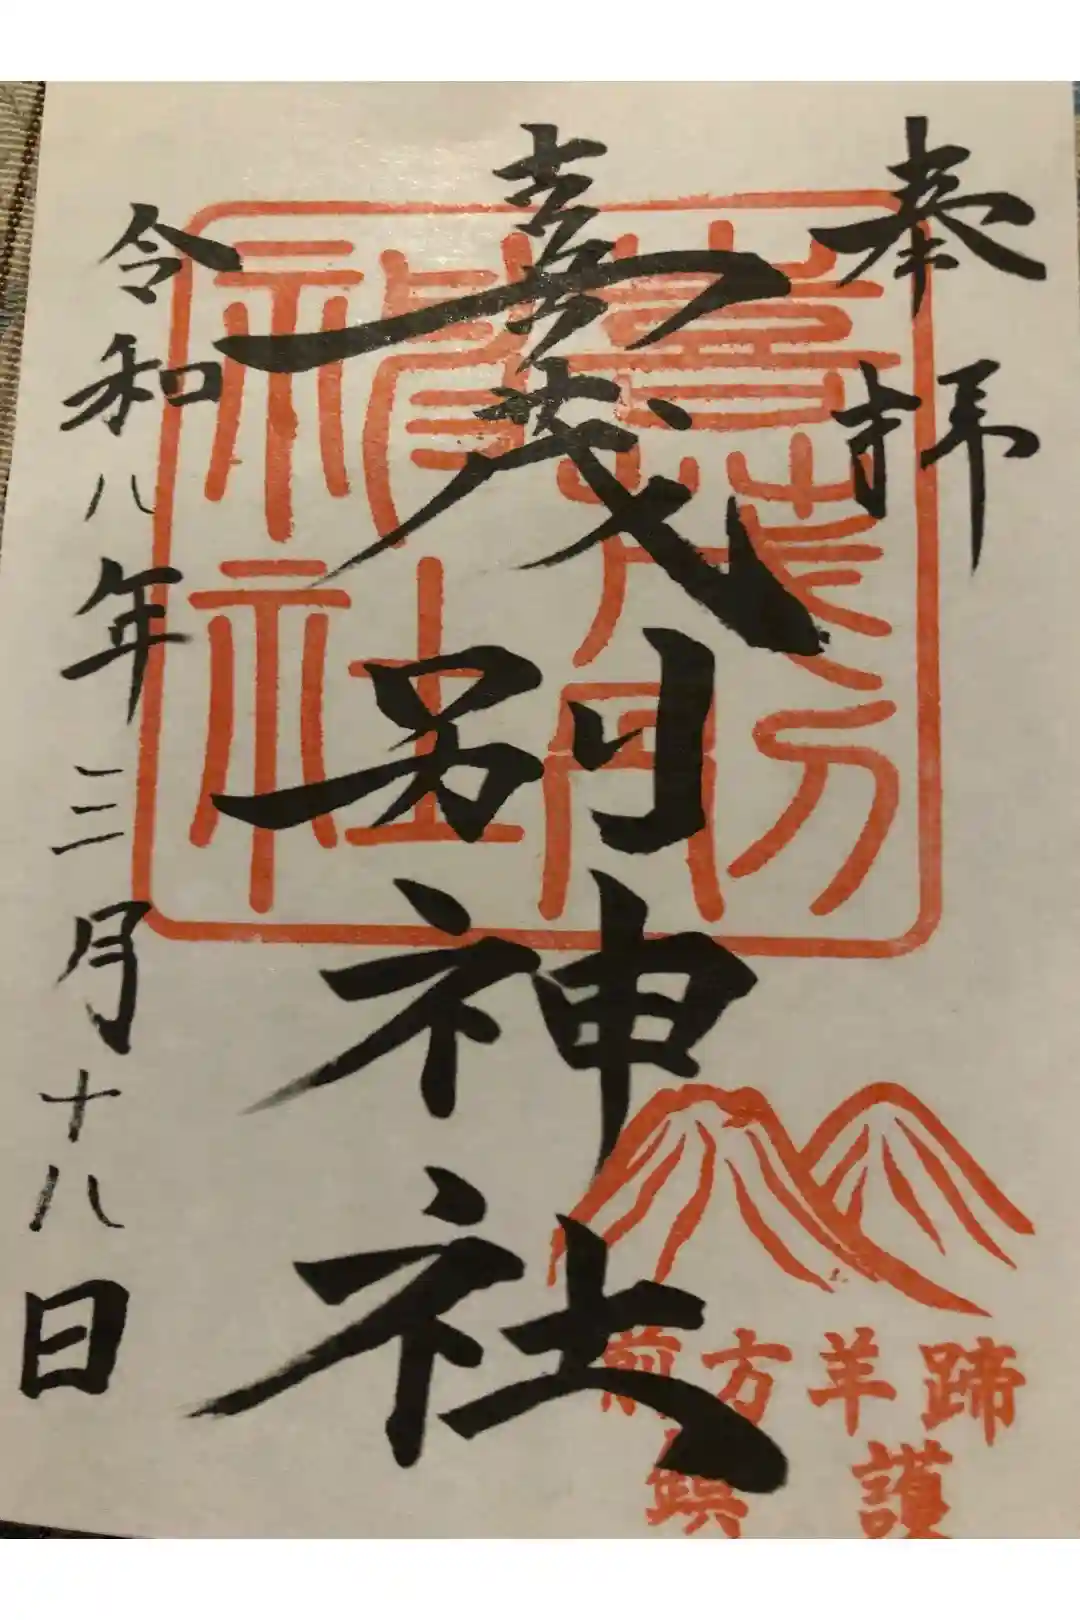 奉拝
喜茂別神社
令和八年三月十八日
喜茂別
神社
蹄羊方前
護鎮